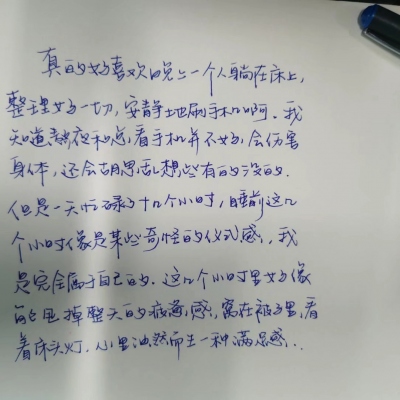 真的好喜欢晚上一个人躺在床上,
整理好一切,安静地刷手机啊。我
知道熬夜和总看手机并不好,会伤害
身体,还会胡思乱想些有的没的.
但是一天忙碌了十几个小时,睡前这几
个小时像是某些奇怪的仪式感,我
是完全属于自己的.这几个小时里好像
能甩掉整天的疲惫感,窝在被子里,看
着床头灯.心里油然而生一种满足感..